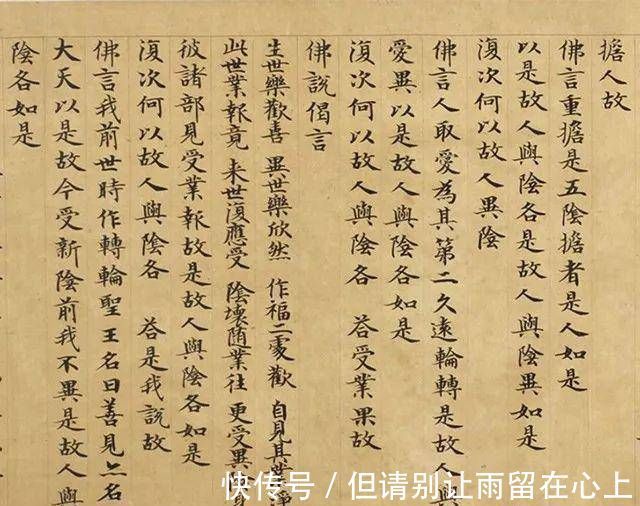 擔人故
佛言重擔是五陰擔者是人如是
以是故人與陰各是故人與陰異如是
復次何以故人異陰
佛言人取愛為其第二久遠輪轉是故人
愛異以是故人與陰各如是
復次何以故人與陰各 荅受業果故
佛說偈言
生世樂歡喜 異世樂欣然 作福二處歡 自見其業淨
此世業報竟 未世復應受 陰壞随業往 更受異
彼諸部見受業報故是故人與陰各如是
復次何以故人與陰各 荅是我說故
佛言我前世時作轉輪聖王名曰善見六名
大天以是故今受新陰前我不異是故人與
陰各如是
快传号 / 但请别让雨留在心上